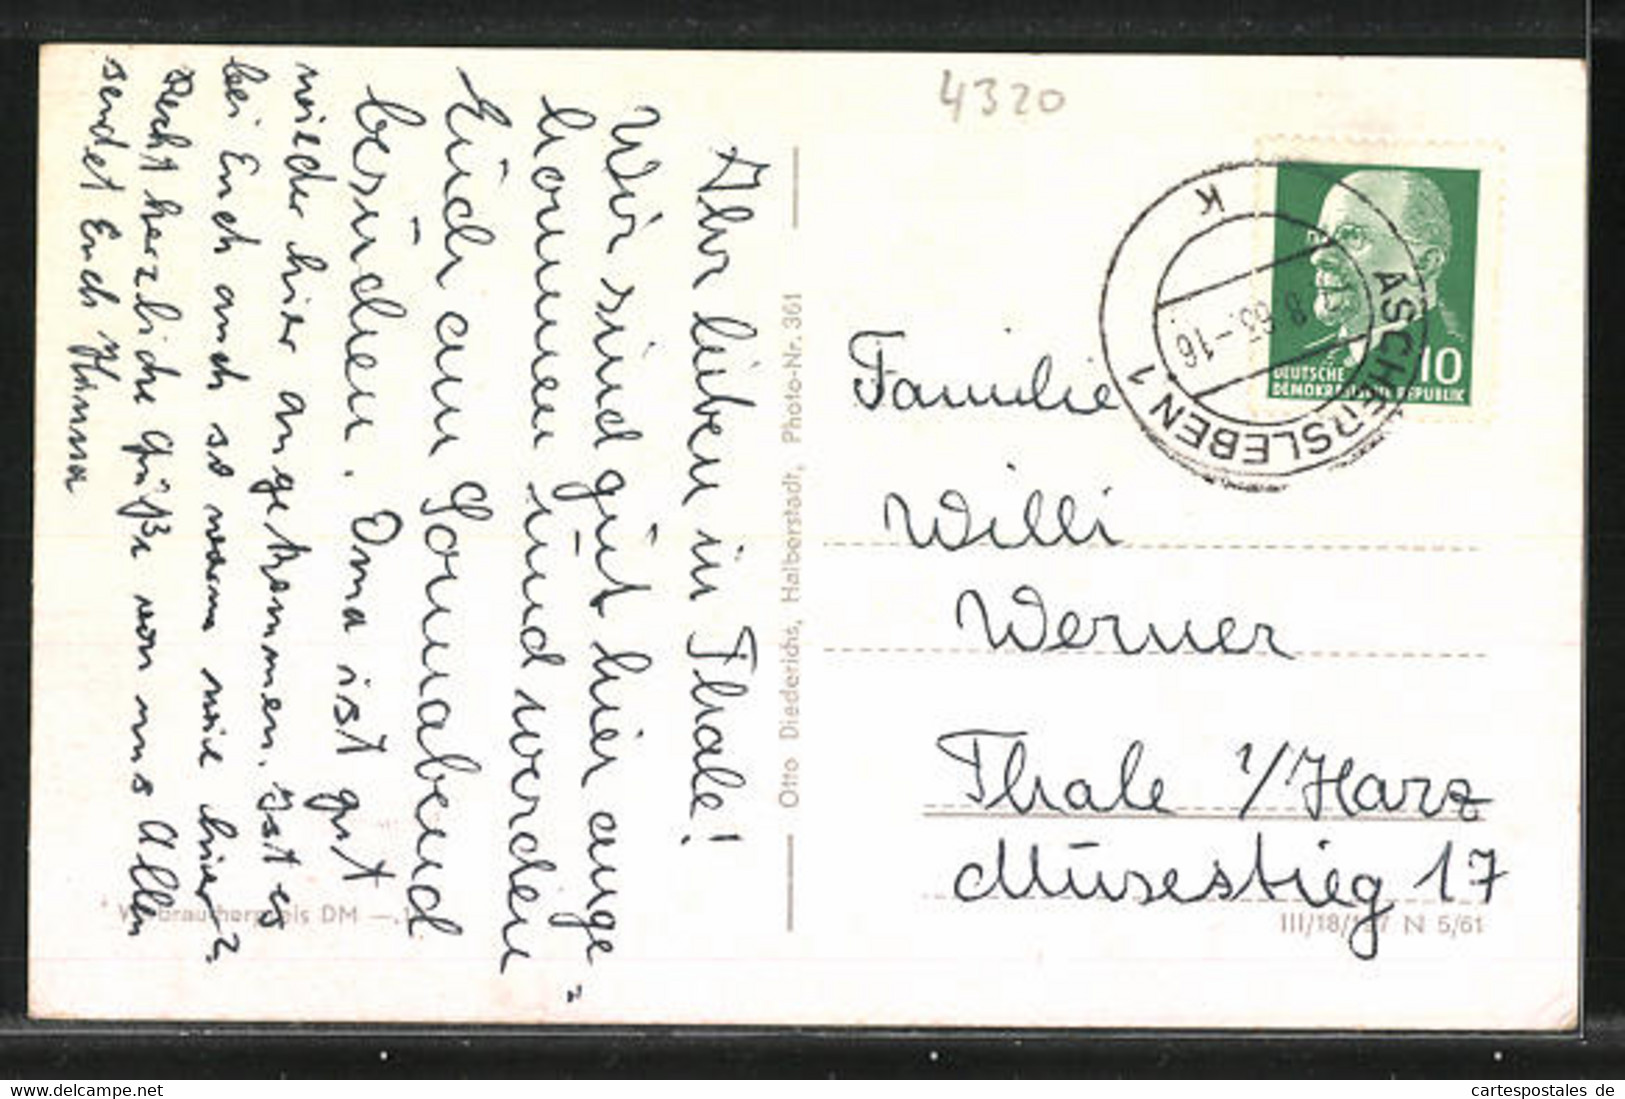 4320
Ihr lieben in Thale!
Wir sind gut hier ange„
kommen und werden
Euch am Sonnabend
besuchen. Oma ist gut
wieder hier angekommen. Ist es
bei Euch auch so warm wie hier?
Recht herzliche Grüße von uns Allen
sendet Euch Hanna
Otto Diederichs, Halberstadt, Photo-Nr. 361
Verbraucherpreis DM
ASCHERSLEBEN 1
K
8.63.-16
DEUTSCHE
DEMOKRATISCHE REPUBLIK
10
Familie
Willi
Werner
Thale i/Harz
Musestieg 17
III/18/197 N 5/61
cartespostales de